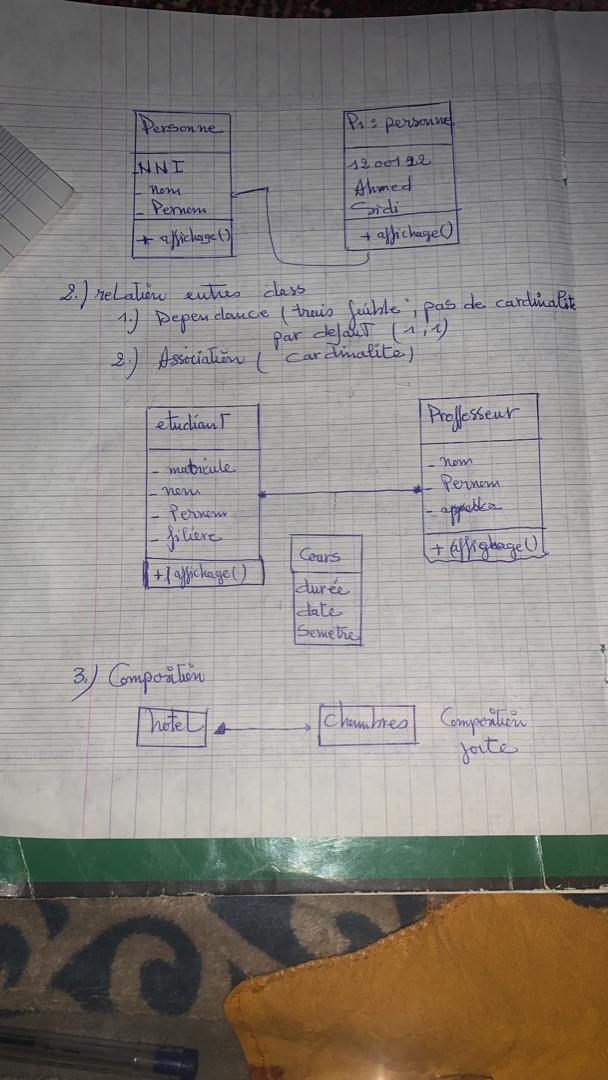 Personne
NNI
- nom
- Pernom
+ affichage()
P1 : personne
1200122
Ahmed
Sidi
+ affichage()
2.) relation entres class
1.) Dependance (trais faible ; pas de cardinalite
par defaut (1,1)
2.) Association ( cardinalite)
etudianT
- matricule
- nom
- Pernom
- filiere
+ affichage()
Proffesseur
- nom
- Pernom
+ affighage()
Cours
durée
date
Semetre
3.) Composition
hotel
Chambres
Composition
forte